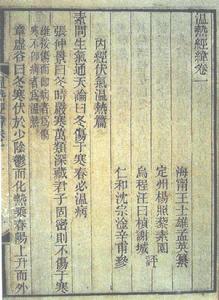 溫熱經緯卷一
海甯王士雄孟英纂
定州楊照藜素園
評
烏程汪曰楨謝城
仁和沈宗淦辛甫參
內經伏氣溫熱篇
素問生氣通天論曰冬傷于寒春必溫病
張仲景曰冬時嚴寒萬類深藏君子固密則不傷于寒
雄按傷而卽病者爲傷
寒不卽病者爲溫熱
章虛谷曰冬寒伏於少陰鬱而化熱乘春陽上升而外